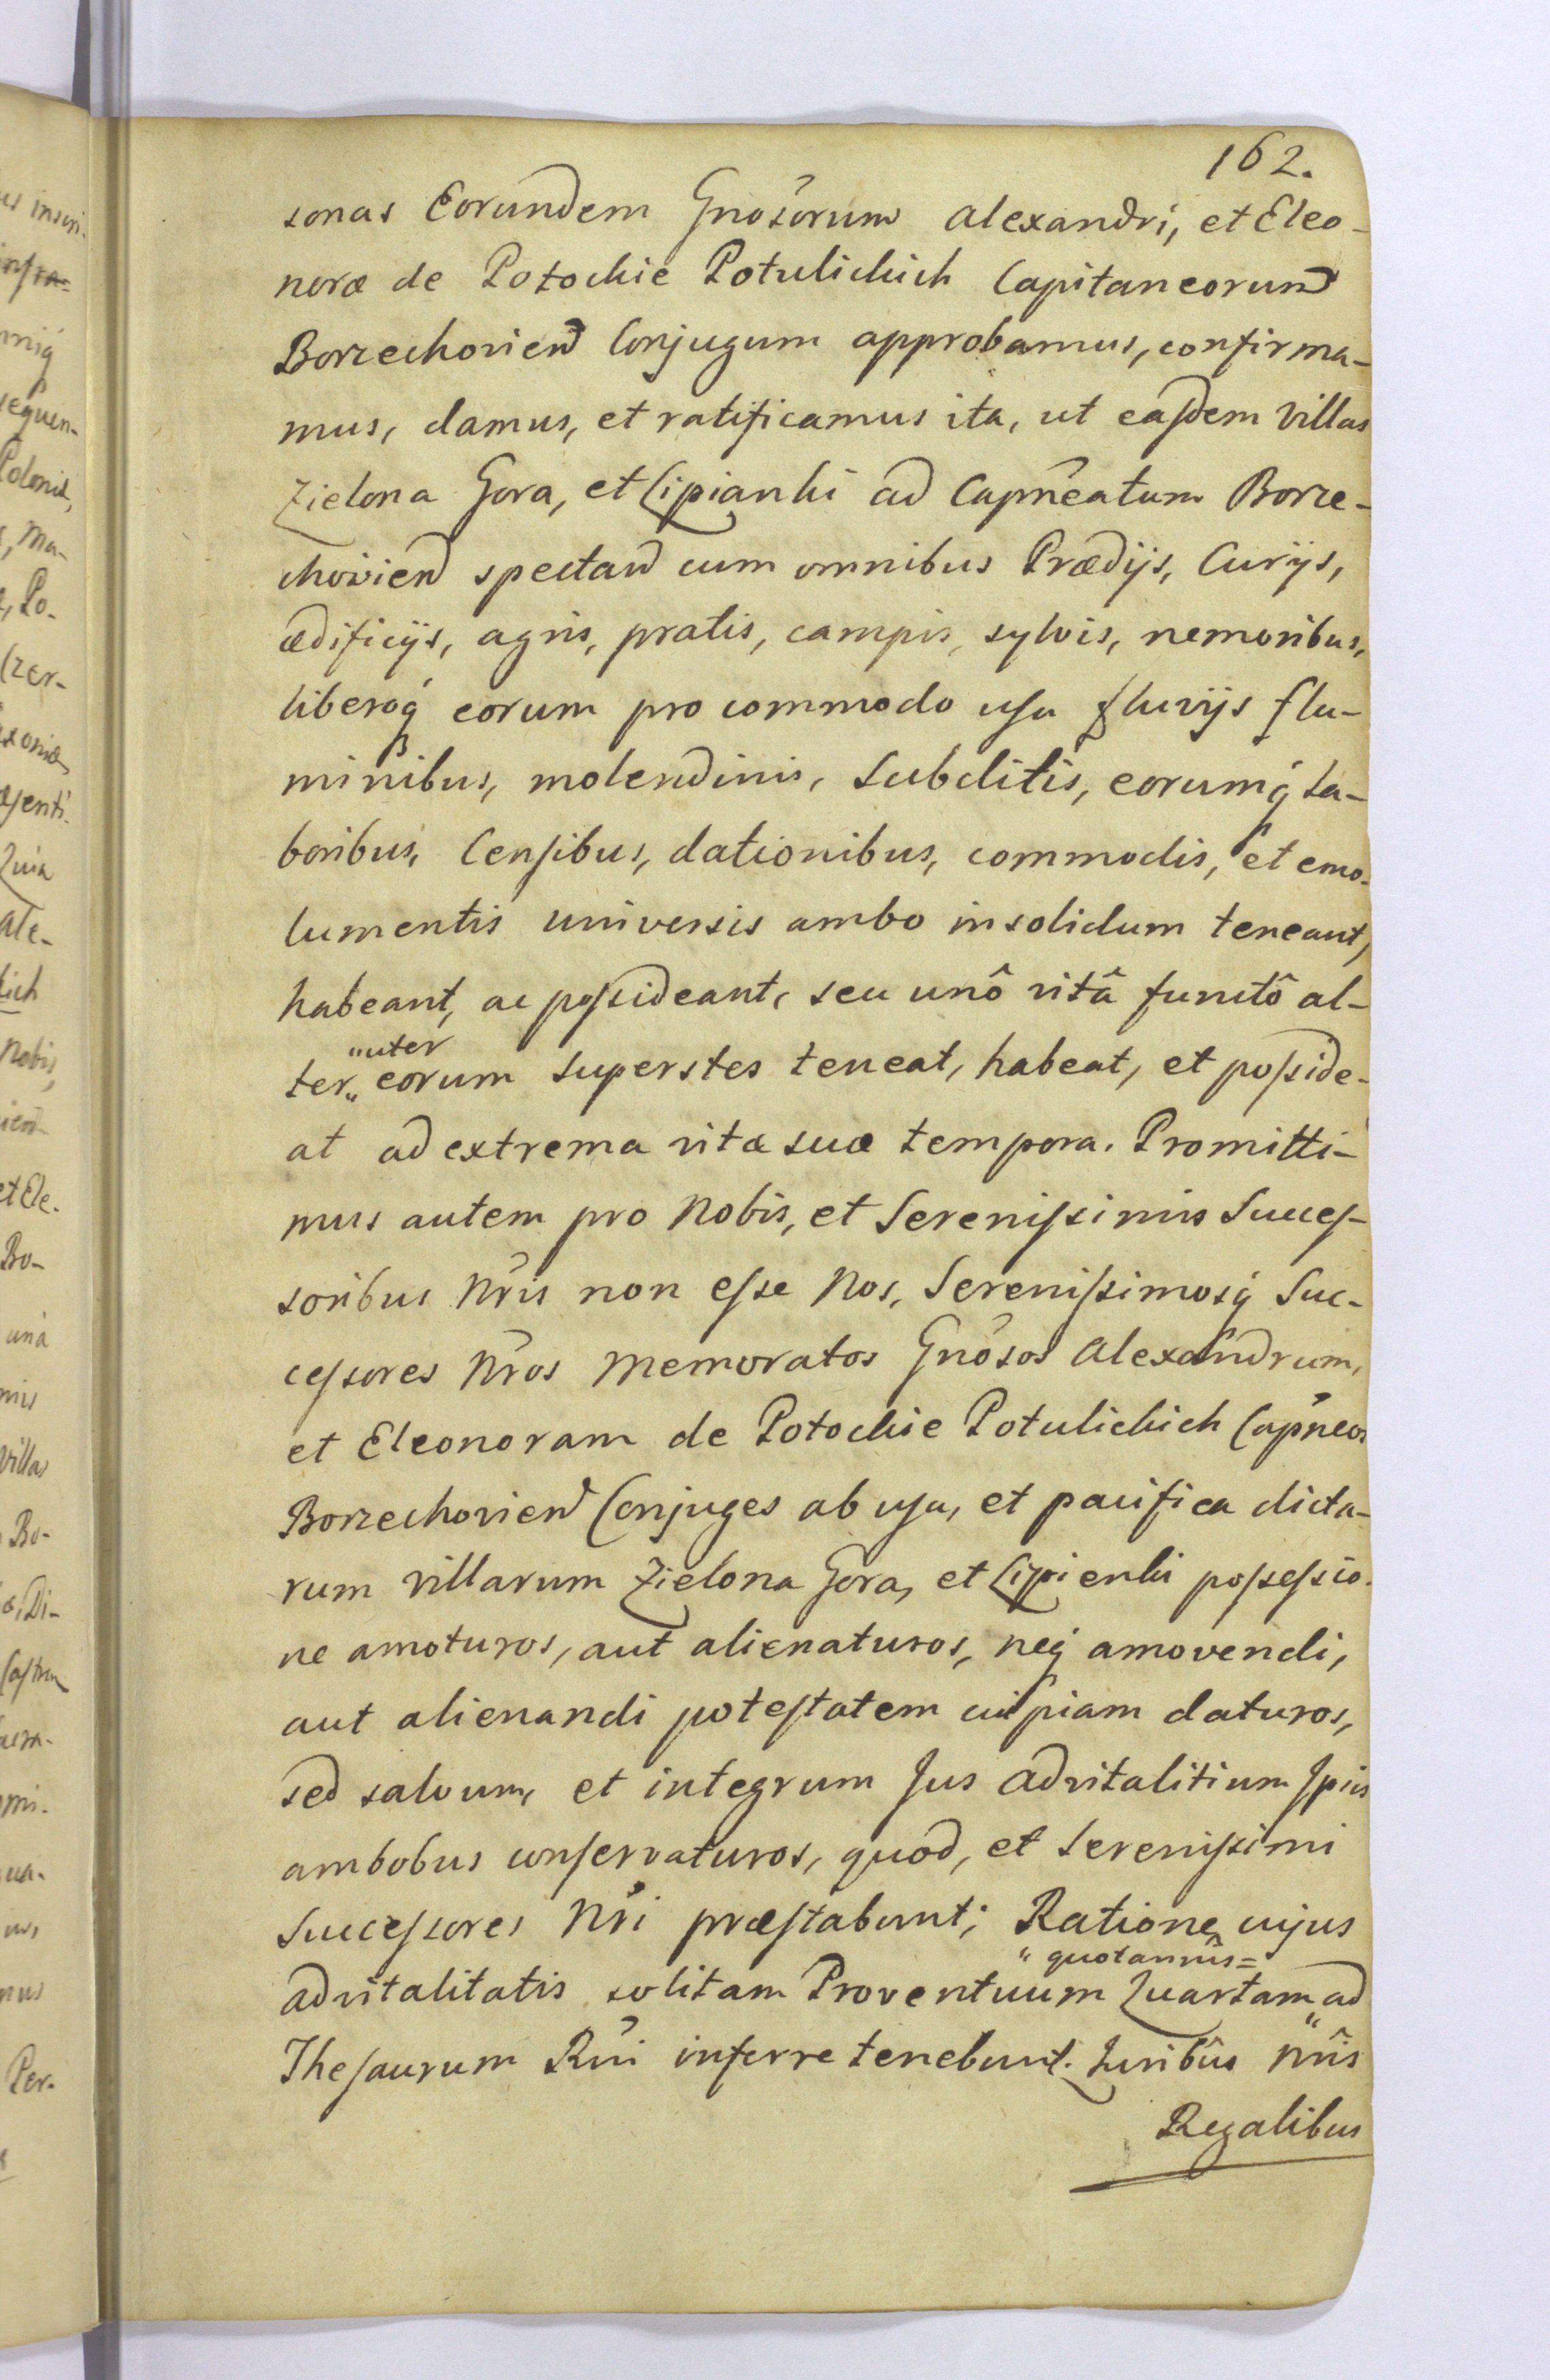 162.
sonas Eorundem Gnosorum Alexandri, et Eleo-
noræ de Potockie Potulickich Capitaneorum
Borzechovien Conjugum approbamus, confirma-
mus, damus, et ratificamus ita, ut easdem Villas
Zielona Gora, et Lipianki ad Capneatum Borze-
chovien spectan cum omnibus Prædijs, Curijs,
ædificijs, agris, pratis, campis, sylvis, nemoribus,
liberoq eorum pro commodo usu fluvijs flu-
minibus, molendinis, Subditis, eorumq La-
boribus, Censibus, dationibus, commodis, et emo-
lumentis universis ambo insolidum teneant,
habeant, ac possideant, seu unô vitâ functô al-
"uter
ter" eorum superstes teneat, habeat, et posside-
at ad extrema vitæ suæ tempora. Promitti-
mus autem pro Nobis, et Serenissimis Succes-
soribus Nris non esse Nos, Serenissimosq Suc-
cessores Nros Memoratos Gnosos Alexandrum,
et Eleonoram de Potockie Potulickich Capneos
Borzechovien Conjuges ab usu, et pacifica dicta-
rum villarum Zielona Gora, et Lipienki possessio-
ne amoturos, aut alienaturos, neq amovendi,
aut alienandi potestatem cuipiam daturos,
sed salvum, et integrum Jus advitalitium Ipsis
ambobus conservaturos, quod, et Serenissimi
Successores Nri præstabunt; Ratione cujus
" quotannis=
advitalitatis solitam Proventuum Quartam ad
Thesaurum Rni inferre tenebunt. Juribus Nris
Regalibus